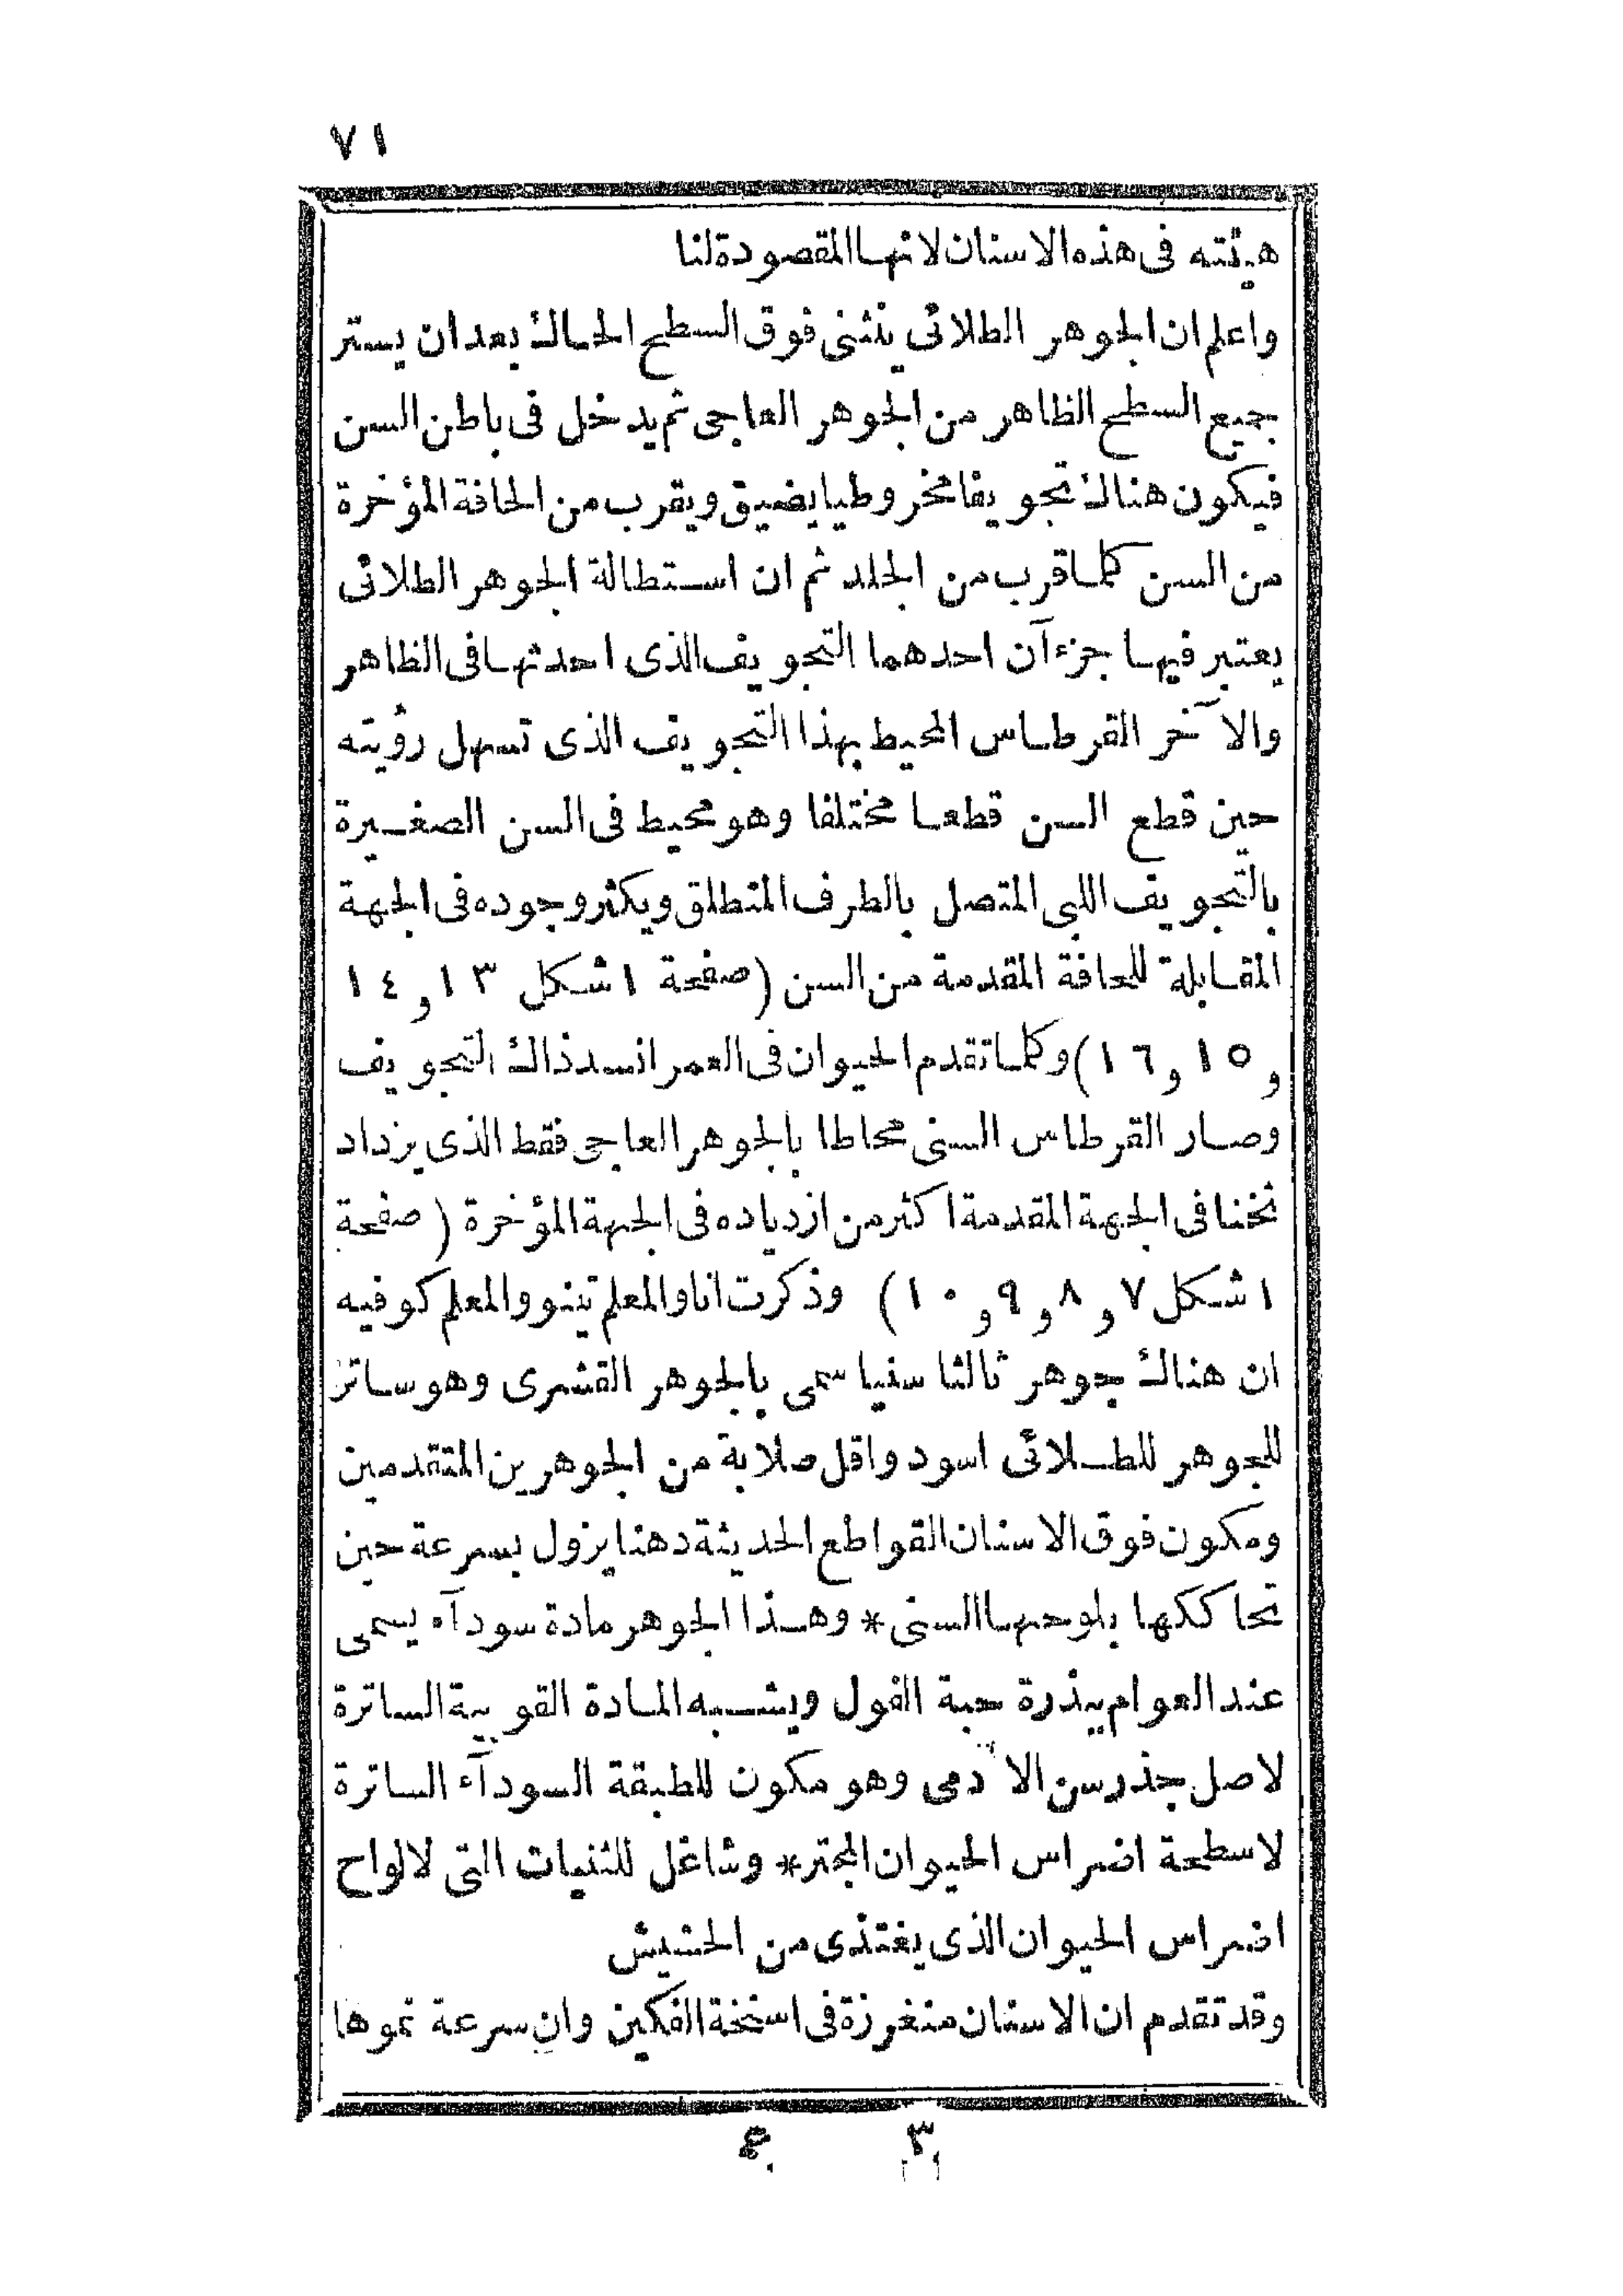 ٧١
هيئته فى هذه الاسنان لانها المقصودة لنا
واعلم ان الجوهر الطلائى ينثنى فوق السطح الحاك بعد ان يستر
جميع السطح الظاهر من الجوهر العاجى ثم يدخل فى باطن السن
فيكون هناك تجويفا مخروطيا يضيق ويقرب من الحافة المؤخرة
من السن كلما قرب من الجلد ثم ان استطالة الجوهر الطلائى
يعتبر فيها جزءآن احدهما التجويف الذى احدثها فى الظاهر
والآخر القرطاس المحيط بهذا التجويف الذى تسهل رؤيته
حين قطع السن قطعا مختلفا وهو محيط فى السن الصغيرة
بالتجويف اللبى المتصل بالطرف المنطلق ويكثر وجوده فى الجهة
المقابلة للحافة المقدمة من السن (صفحة ١ شكل ١٣ و ١٤
و ١٥ و ١٦) وكلما تقدم الحيوان فى العمر انسد ذاك التجويف
وصار القرطاس السنى محاطا بالجوهر العاجى فقط الذى يزداد
ثخنا فى الجهة المقدمة اكثر من ازدياده فى الجهة المؤخرة (صفحة
١ شكل ٧ و ٨ و ٩ و ١٠) وذكرت انا والمعلم تينو والمعلم كوفيه
ان هناك جوهر ثالثا سنيا سمى بالجوهر القشرى وهو ساتر
للجوهر للطلائى اسود واقل صلابة من الجوهرين المتقدمين
ومكون فوق الاسنان القواطع الحديثة دهنا يزول بسرعة حين
تحاككها بلوحها السنى * وهذا الجوهر مادة سودآء يسمى
عند العوام ببذرة حبة الفول ويشبه المادة القوبية الساترة
لاصل جذر سن الآدمى وهو مكون للطبقة السودآء الساترة
لاسطحة اضراس الحيوان المجتر * وشاغل للثنيات التى لالواح
اضراس الحيوان الذى يغتذى من الحشيش
وقد تقدم ان الاسنان منغرزة فى اسنخة الفكين وان سرعة نموها
٣ ع